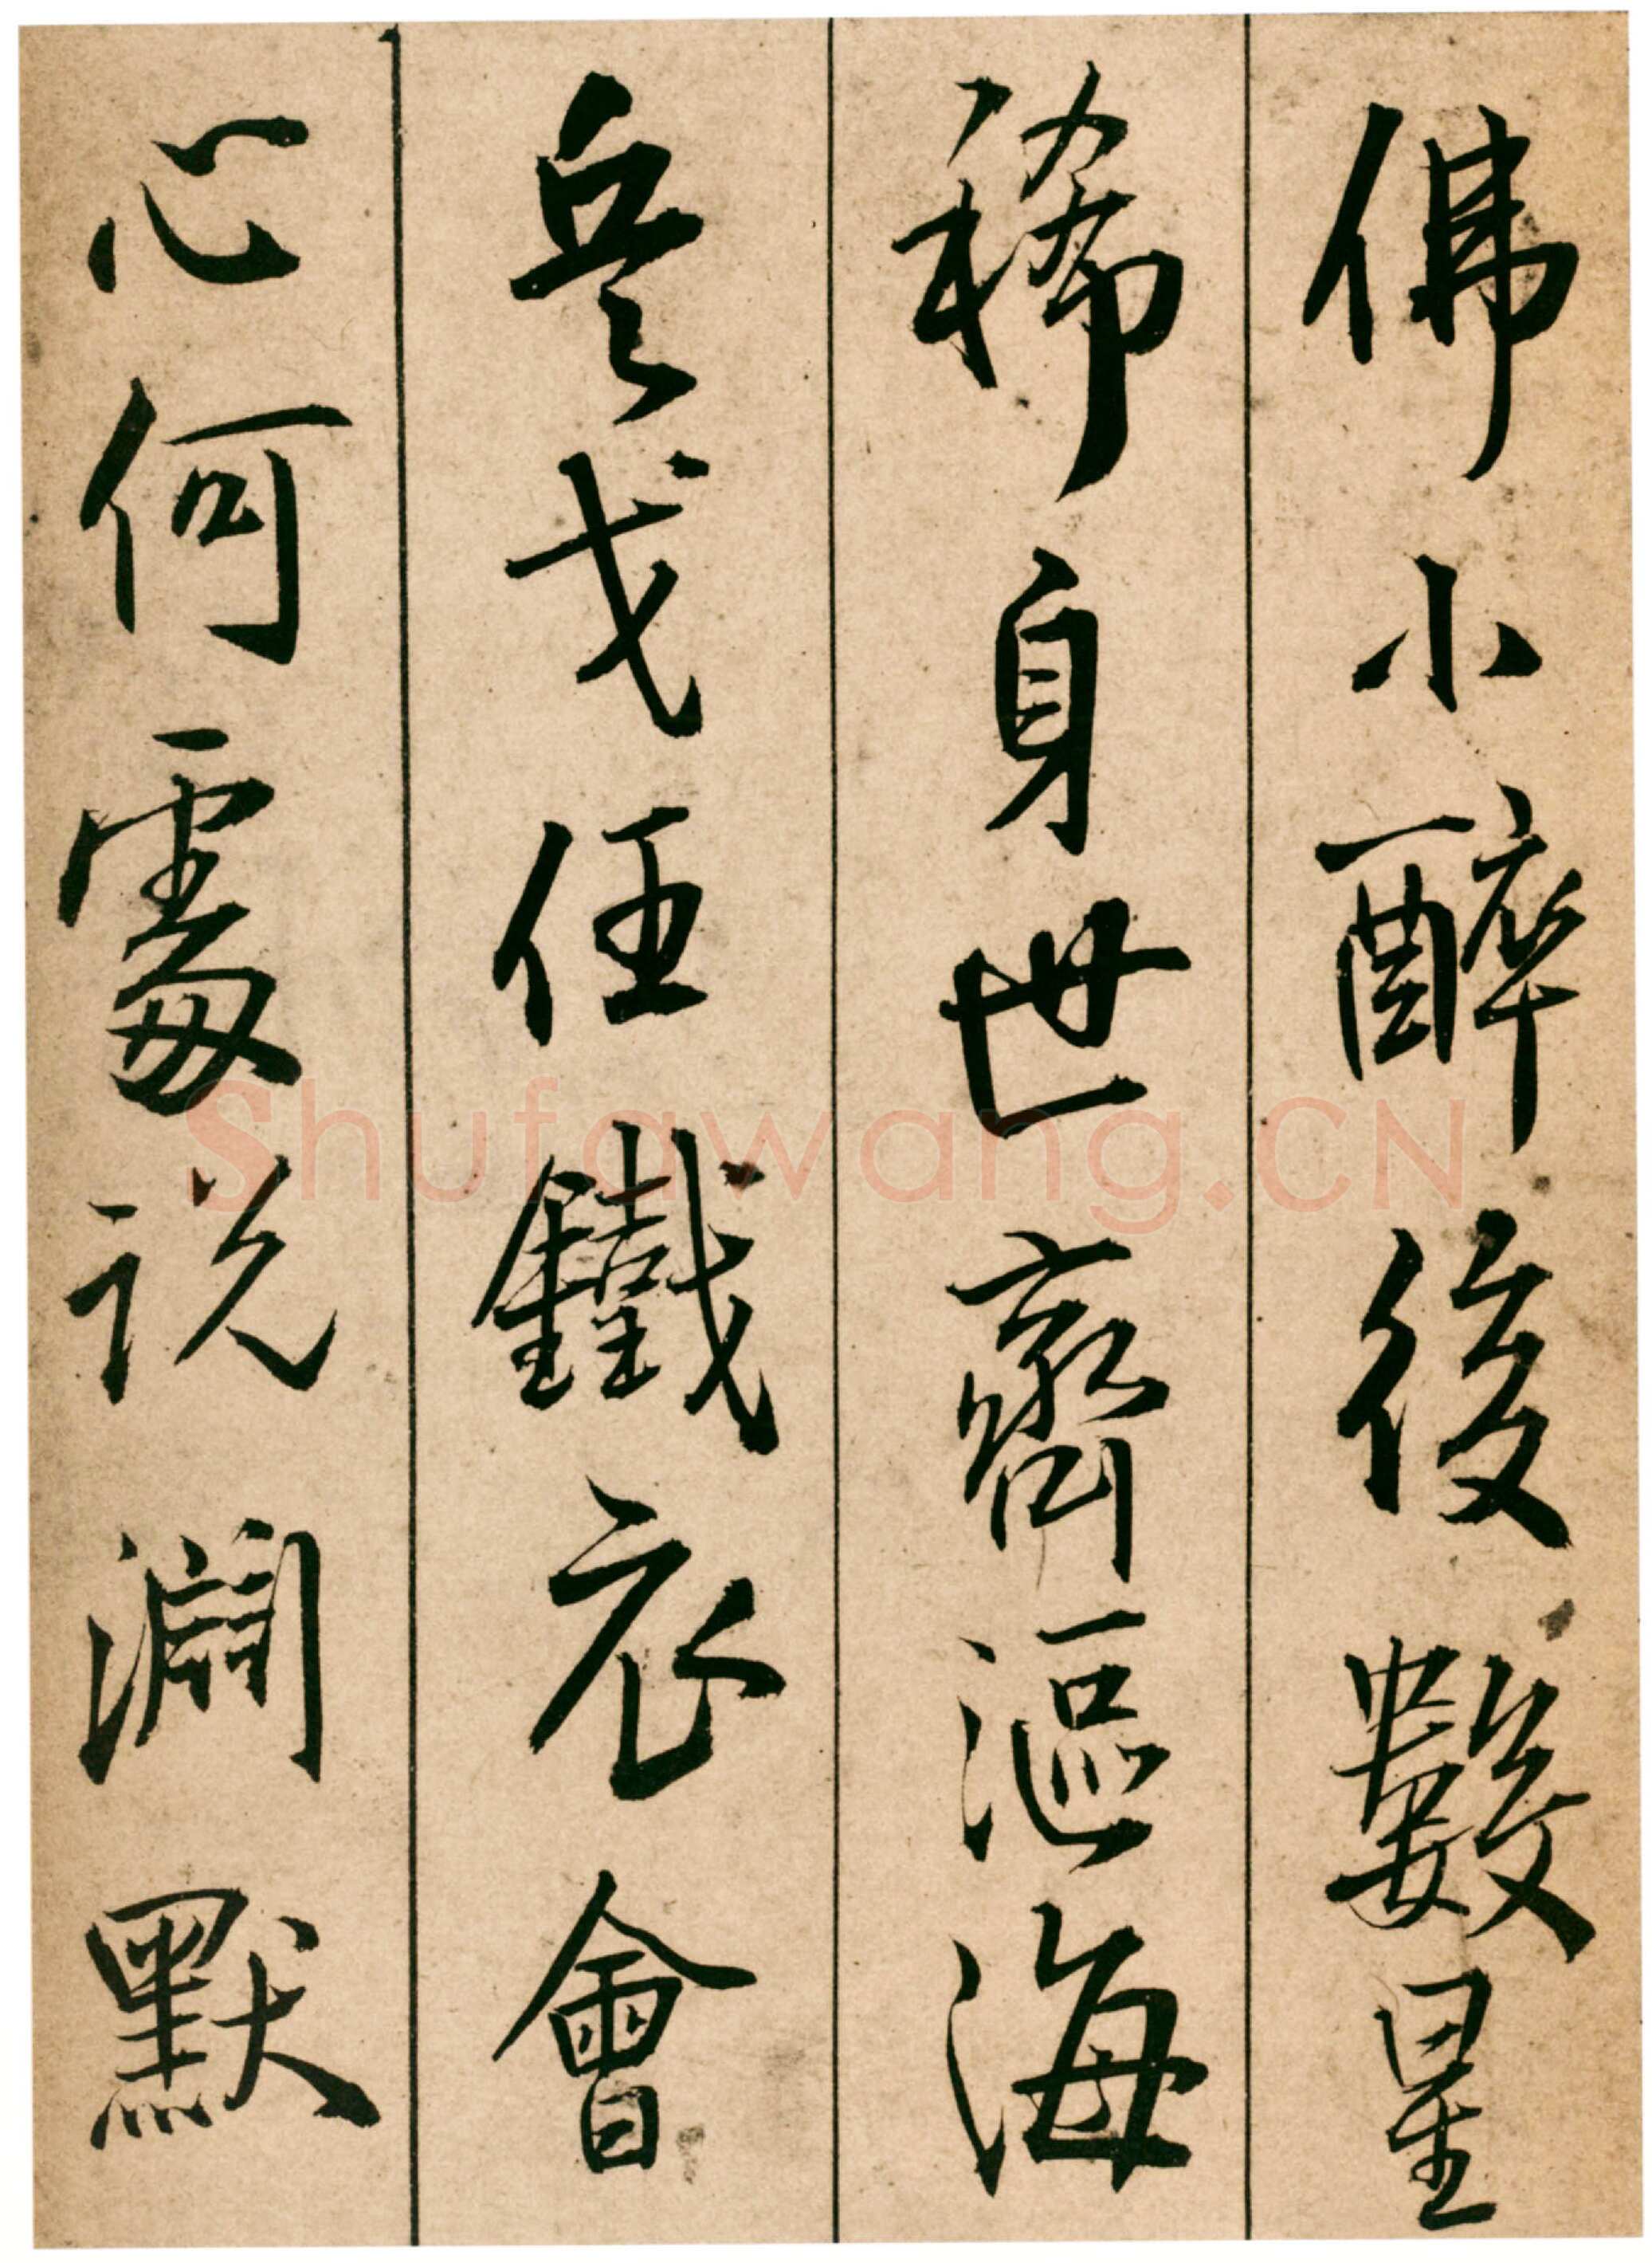 佛小醉後數星
稀身世齊漚海
兵戈任鐵衣會
心何處説淵默
Shufawang.CN